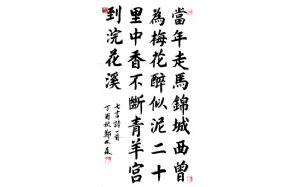 當年走馬錦城西曾
為梅花醉似泥二十
里中香不斷青羊宮
到浣花溪
七言詩一首
丁酉秋鄭